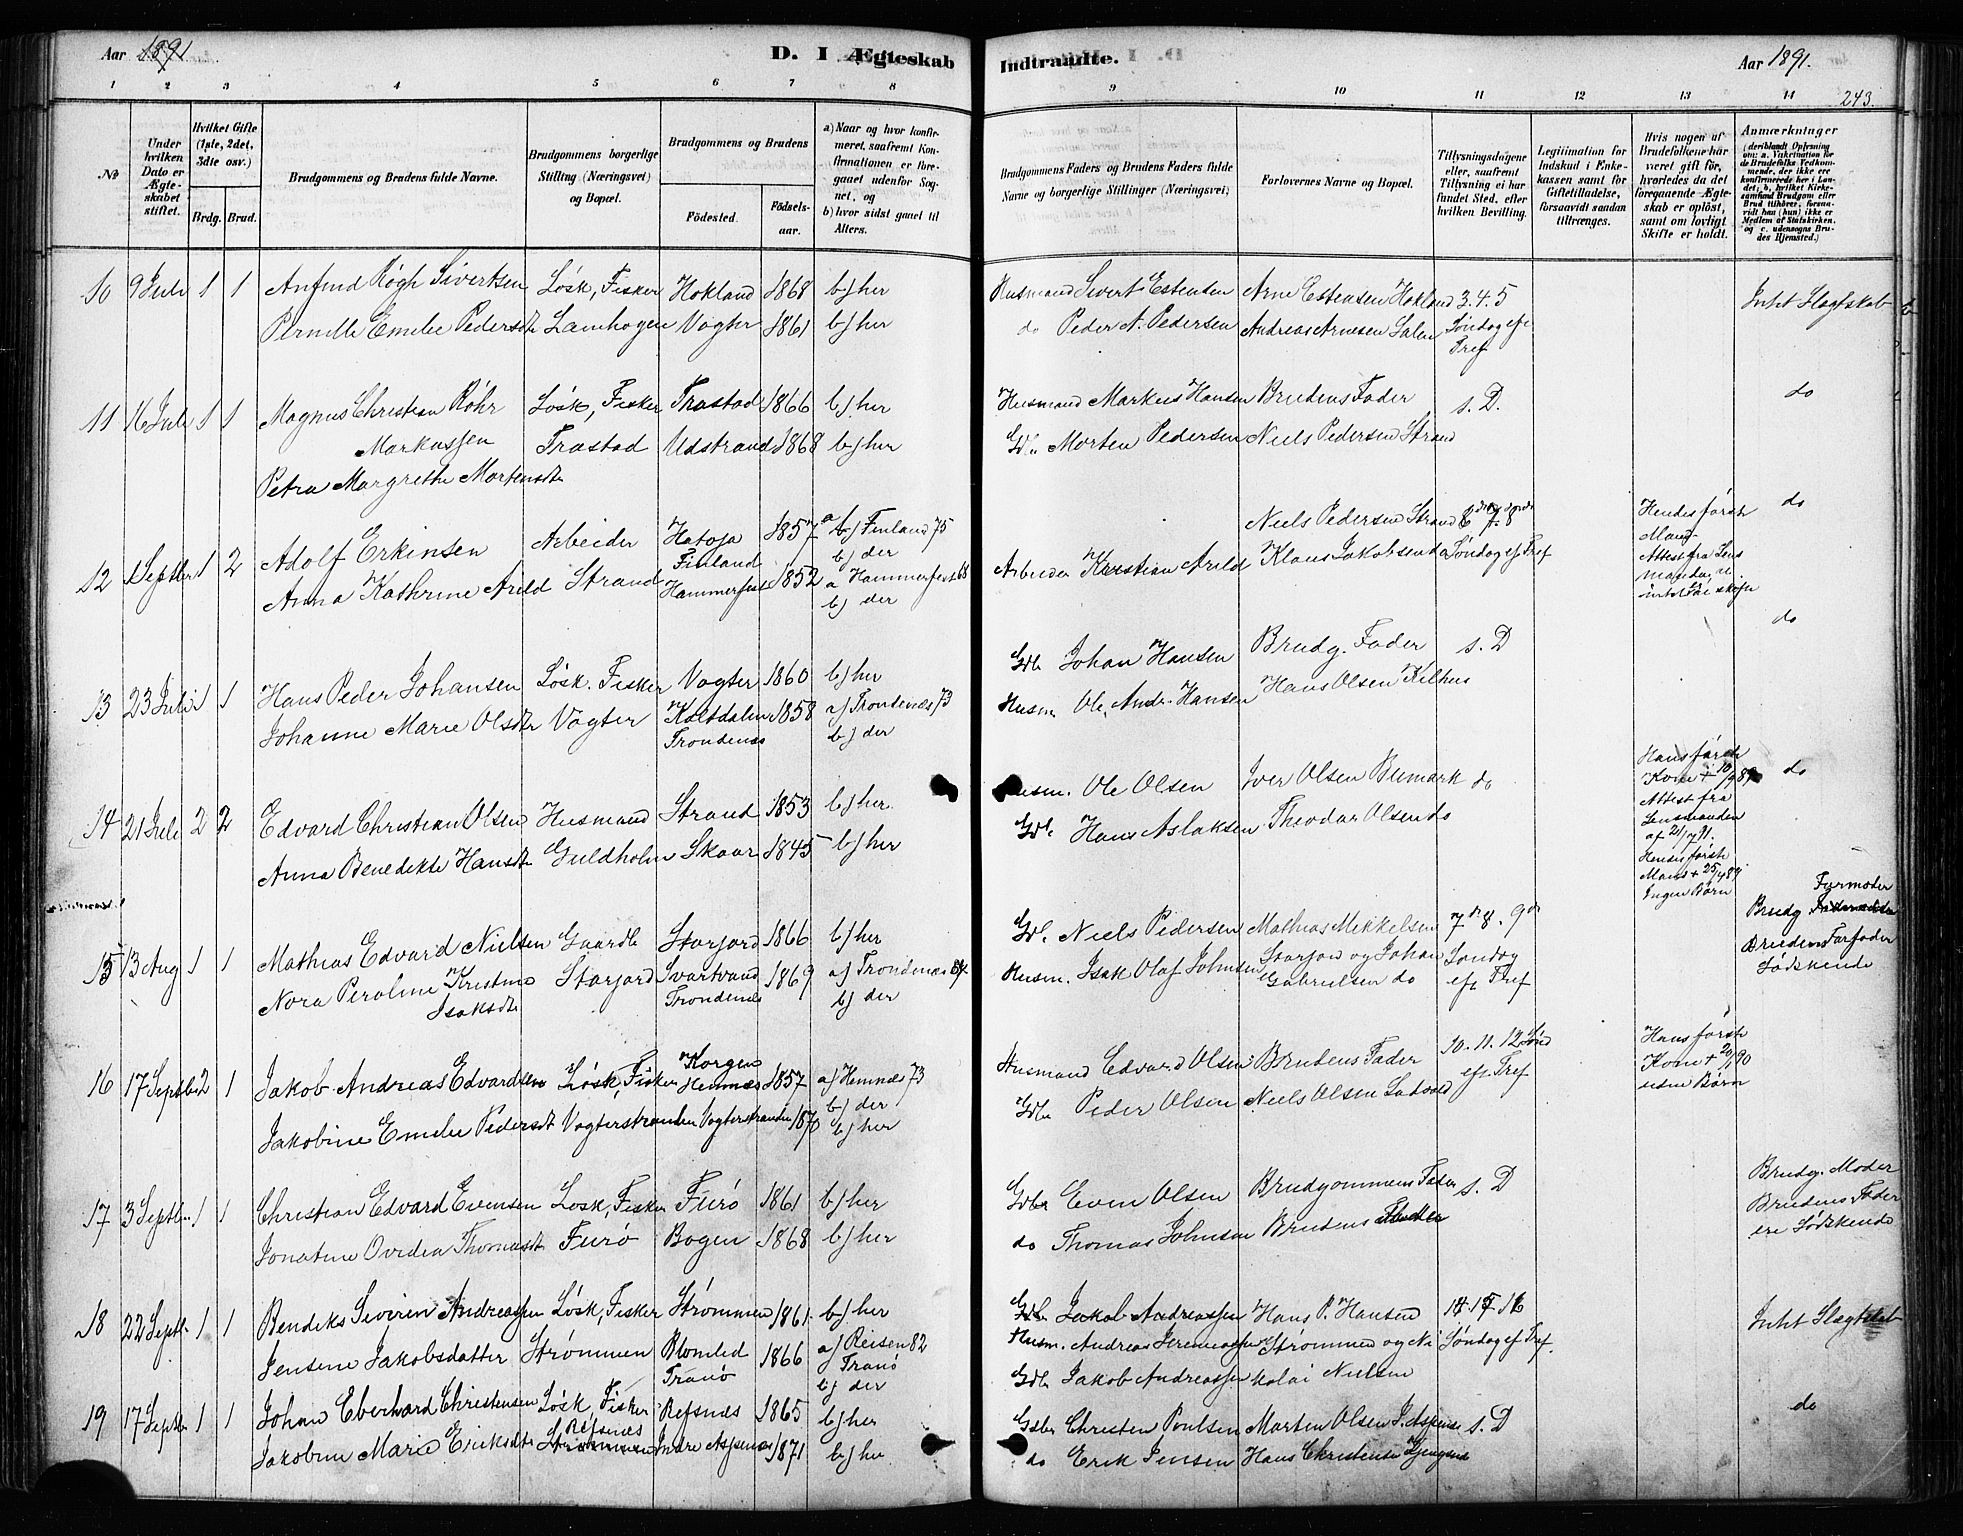 Aar 1891
D. I Ægteskab
1 2 3 4 5 6 7 8
No
Under hvilken Dato er Ægteskabet stiftet.
Hvilket Gifte (1ste, 2det, 3dte osv.)
Brdg. Brud.
Brudgommens og Brudens fulde Navne.
Brudgommens borgerlige Stilling (Næringsvei) og Bopæl.
Brudgommens og Brudens
Födested.
Födselsaar.
a) Naar og hvor konfirmeret, saafremt Konfirmationen er foregaaet udenfor Sognet, og
b) hvor sidst gaaet til Alters.
10 9 Juli 1 1 Anfind Røgh Sivertsen Løsk, Fisker Hokland 1868 b) her
Pernille Emilie Pedersdtr Lamhogen Vogter 1861 b) her
11 16 Juli 1 1 Magnus Christian Röhr Løsk, Fisker Trastad 1866 b) her
Markussen Trastad Udstrand 1868 b) her
Petra Margrethe Mortensdtr
12 1 Septbr 1 2 Adolf Erkinsen Arbeider Hatoja Finland 1857 a) Finland 75
b) der
Anna Kathrine Arild Strand Hammerfest 1852 a Hammerfest 68
b) der
13 23 Juli 1 1 Hans Peder Johansen Løsk. Fisker Vogter 1860 b) her
Johanne Marie Olsdtr Vogter Kaltdalen 1858 a) Trondenæs 73
Trondenæs b) der
14 21 Juli 2 2 Edvard Christian Olsen Husmand Strand 1853 b) her.
Anna Benedikte Hansdtr Guldholm Skaar 1845 b) her
15 13 Aug 1 1 Mathias Edvard Nielsen Gaardb Storjord 1866 b) her
Nora Peroline Kristine Storjord Svartvand 1869 a) Trondenæs 84
Isaksdtr Trondenæs b) der
16 17 Septbr 2 1 Jakob Andreas Edvardsen Løsk, Fisker Korgen Hemnæs 1857 a) Hemnæs 73
b) der
Jakobine Emilie Pedersdt Vogterstranden Vogterstranden 1870 b) her
17 3 Septbr. 1 1 Christian Edvard Evensen Løsk, Fisker Furø 1861 b) her
Jonatine Ovidea Thomasdt Furø Bogen 1868 b) her
18 22 Septbr. 1 1 Bendiks Siviren Andreassen Løsk, Fisker Strømmen 1861 b) her
Jensine Jakobsdatter Strømmen Blomlid 1866 a) Reisen 82
Tranø Tranø
b) der
19 17 Septbr 1 1 Johan Eberhard Christensen Løsk, Fisker Refsnæs 1865 b) her
Refsnæs
Jakobine Marie Eriksdtr Strømmen Indre Aspenæs 1871 b) her
Indtraadte.
Aar 1891.
9 10 11 12 13 14 243.
Brudgommens Faders og Brudens Faders fulde Navne og borgerlige Stillinger (Næringsvei)
Forlovernes Navne og Bopæl.
Tillysningsdagene eller, saafremt Tillysning ei har fundet Sted, efter hvilken Bevilling.
Legitimation for Indskud i Enkekassen samt for Giftetilladelse, forsaavidt saadan tiltrænges.
Hvis nogen af Brudefolkene har været gift för, hvorledes da det foregaaende Ægteskab er oplöst, samt om lovligt Skifte er holdt.
Anmærkninger (deriblandt Oplysning om: a. Vakcination for de Brudefolks Vedkommende, der ikke ere konfirmerede her i Landet; b. hvilket Kirkesamfund Brudgom eller Brud tilhörer, forsaavidt han (hun) ikke er Medlem af Statskirken, og c. udensogns Brudes Hjemsted.)
Husmand Sivert Estensen Arne Estensen Hokland 3. 4. 5 Intet Slagtskab
do Peder A. Pedersen Andreas Arnesen Salen Søndag eft Tref
Husmand Markus Hansen Brudens Fader s. D. do
Gdb. Morten Pedersen Niels Pedersen Strand
Niels Pedersen Strand 6 7 8 Hendes første Mand do
Arbeider Kristian Arild Klaus Jakobsen do Søndag ef Tref Attest fra Lensmanden
Gdb Johan Hansen Brudg. Fader s. D do
Husm Ole Andr. Hansen Hans Olsen Kilhus
Husm. Ole Olsen Iver Olsen Bumark do Hans første Kone + 10/9 89 do
Gdb Hans Aslaksen Theodor Olsen do Attest fra Lensmanden af 21/7 91.
Hendes første Mand + 25/4 89
Ingen Børn
Gdb. Niels Pedersen Mathias Mikkelsen 7de 8. 9de Brudg Farmoder
Husm. Isak Olaf Johnsen Storjord og Johan Søndag Brudens Farfader
Gabrielsen do eft Tref Sødskende
Husmand Edvard Olsen Brudens Fader 10. 11. 12 Sønd Hans første
Gdb Peder Olsen Niels Olsen eft. Tref Kone + 20/1 90
uden Børn
Gdbr Even Olsen Brudgommens Fader s. D Brudg. Moder
do Thomas Johnsen Brudens Fader Brudens Fader
ere Sødskende
Gdb Jakob Andreassen Hans P. Hansen Intet Slægtskab
Husm. Andreas Jeremiassen Strømmen og Ni- Søndag ef Tref.
Gdb Jakob Andreassen kolai Nielsen
Gdbr Christen Poulsen Martin Olsen I. Aspenæs s. D do
do Erik Jensen Hans Christensen